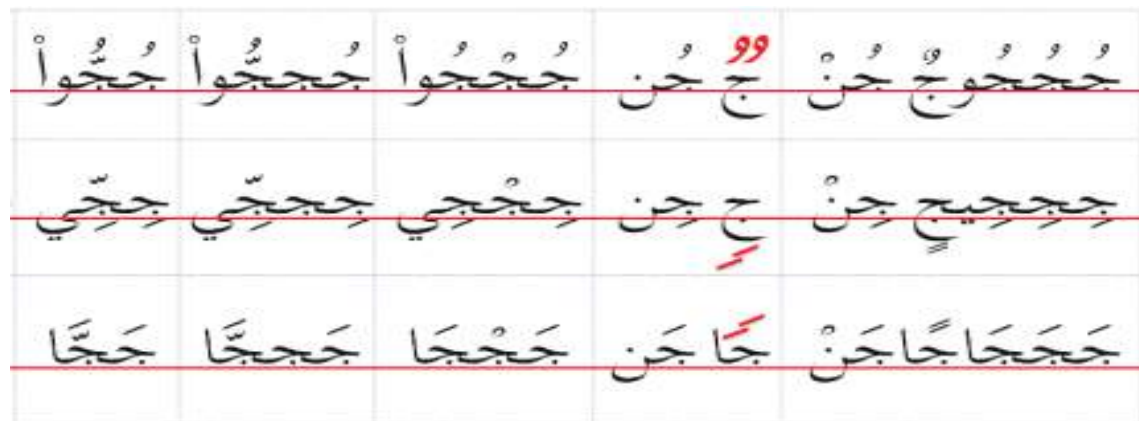 جُجُجُوجٌ جُنْ جٌ جُن جُجْجُواْ جُججُّواْ جُجُّواْ
جِجِجِيجٍ جِنْ جٍ جِن جِجْجِي جِججِّي جِجِّي
جَجَجَاجًا جَنْ جًا جَن جَجْجَا جَججَّا جَجَّا